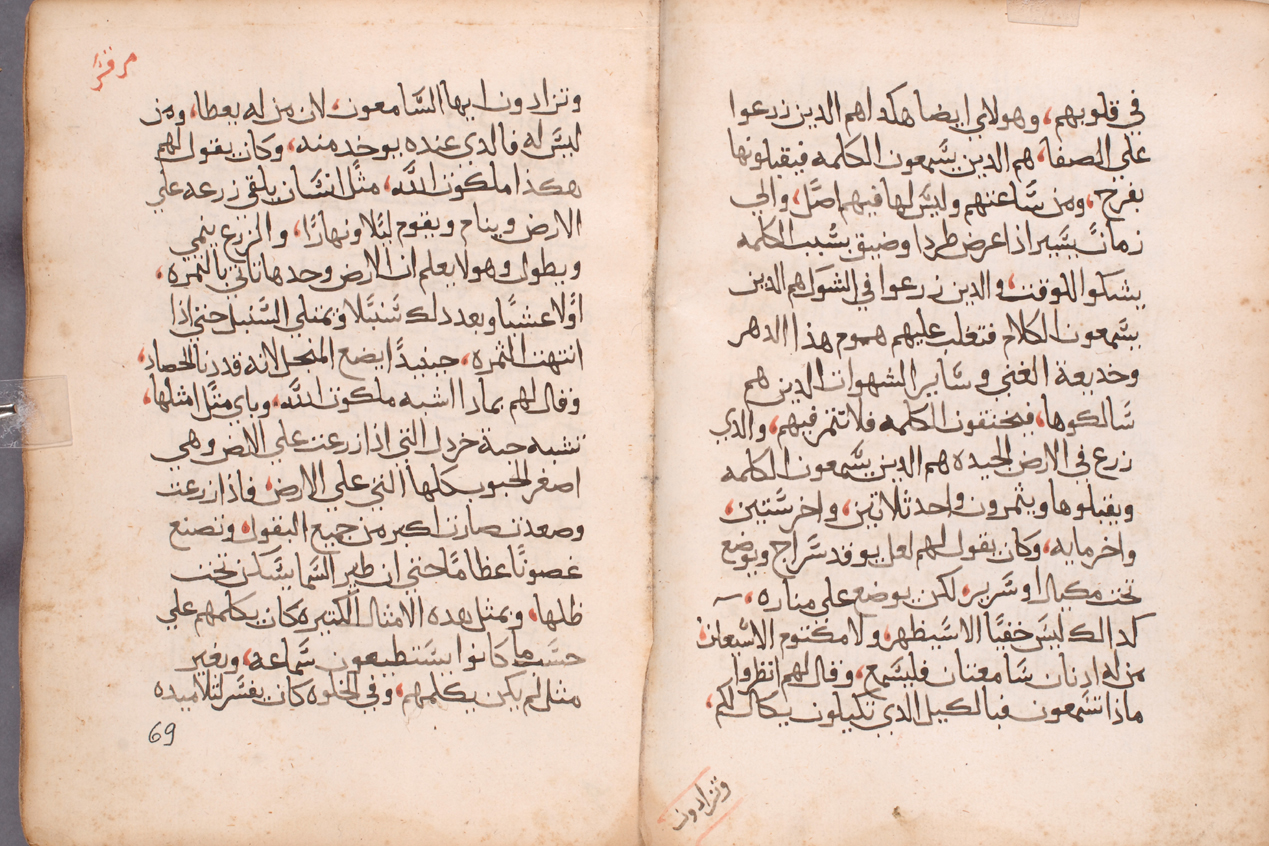 في قلوبهم، وهولاي ايضا هكدا هم الدين زرعوا
علي الصفا، هم الدين يسمعون الكلمه فيقبلونها
بفرح، ومن ساعتهم وليس لها فيهم اصل، والي
زمان يسير اذا عرض طردا وضيق بسبب الكلمه
يشكوا للوقت، والدين زرعوا في الشوك هم الدين
يسمعون الكلام فتغلب عليهم هموم هذا الدهر
وخديعة الغني وساير الشهوات الدين هم
سالكوها، فيختنقون الكلمه فلا تثمر فيهم، والدي
زرع في الارض الجيده هم الدين يسمعون الكلمه
ويقبلوها ويثمرون واحد ثلاتين، واخر ستين،
واخر مايه، وكان يقول لهم لعل يوقد سراج ويوضع
تحت مكيال او سرير، لكن يوضع علي مناره،
كدالك ليس خفيا الا سيظهر، ولا مكتوم الا سيعلن،
من له ادنان سامعتان فليسمع، وقال لهم انظروا
ماذا تسمعون فبالكيل الدي تكيلون يكال لكم،
وتزادون
مرقس
وتزادون ايها السامعون، لان من له يعطا، ومن
ليس له فالدي عنده يوخد منه، وكان يقول لهم
هكذا ملكوت الله، مثل انسان يلقي زرعه علي
الارض وينام ويقوم ليلا ونهارا، والزرع ينمي
ويطول وهو لا يعلم ان الارض وحدها تاتي بالثمره،
اولا عشبا وبعد دلك سنبلا ويمتلي السنبل حتي اذا
انتهت الثمره، حينيدا يضع المنجل لانه قد دنا الحصاد،
وقال لهم بمادا اشبه ملكوت الله، وباي مثل امثلها،
تشبه حبة خردل التي اذا زرعت علي الارض وهي
اصغر الحبوب كلها التي علي الارض، فاذا زرعت
وصعدت صارت اكبر من جميع البقول، وتصنع
غصونا عظاما حتي ان طير السما يسكن تحت
ظلها، وبمثل هده الامثال الكتيره كان يكلمهم علي
حسب ما كانوا يستطيعون سماعه، وبغير
مثل لم يكن يكلمهم، وفي الخلوه كان يفسر لتلاميده
69